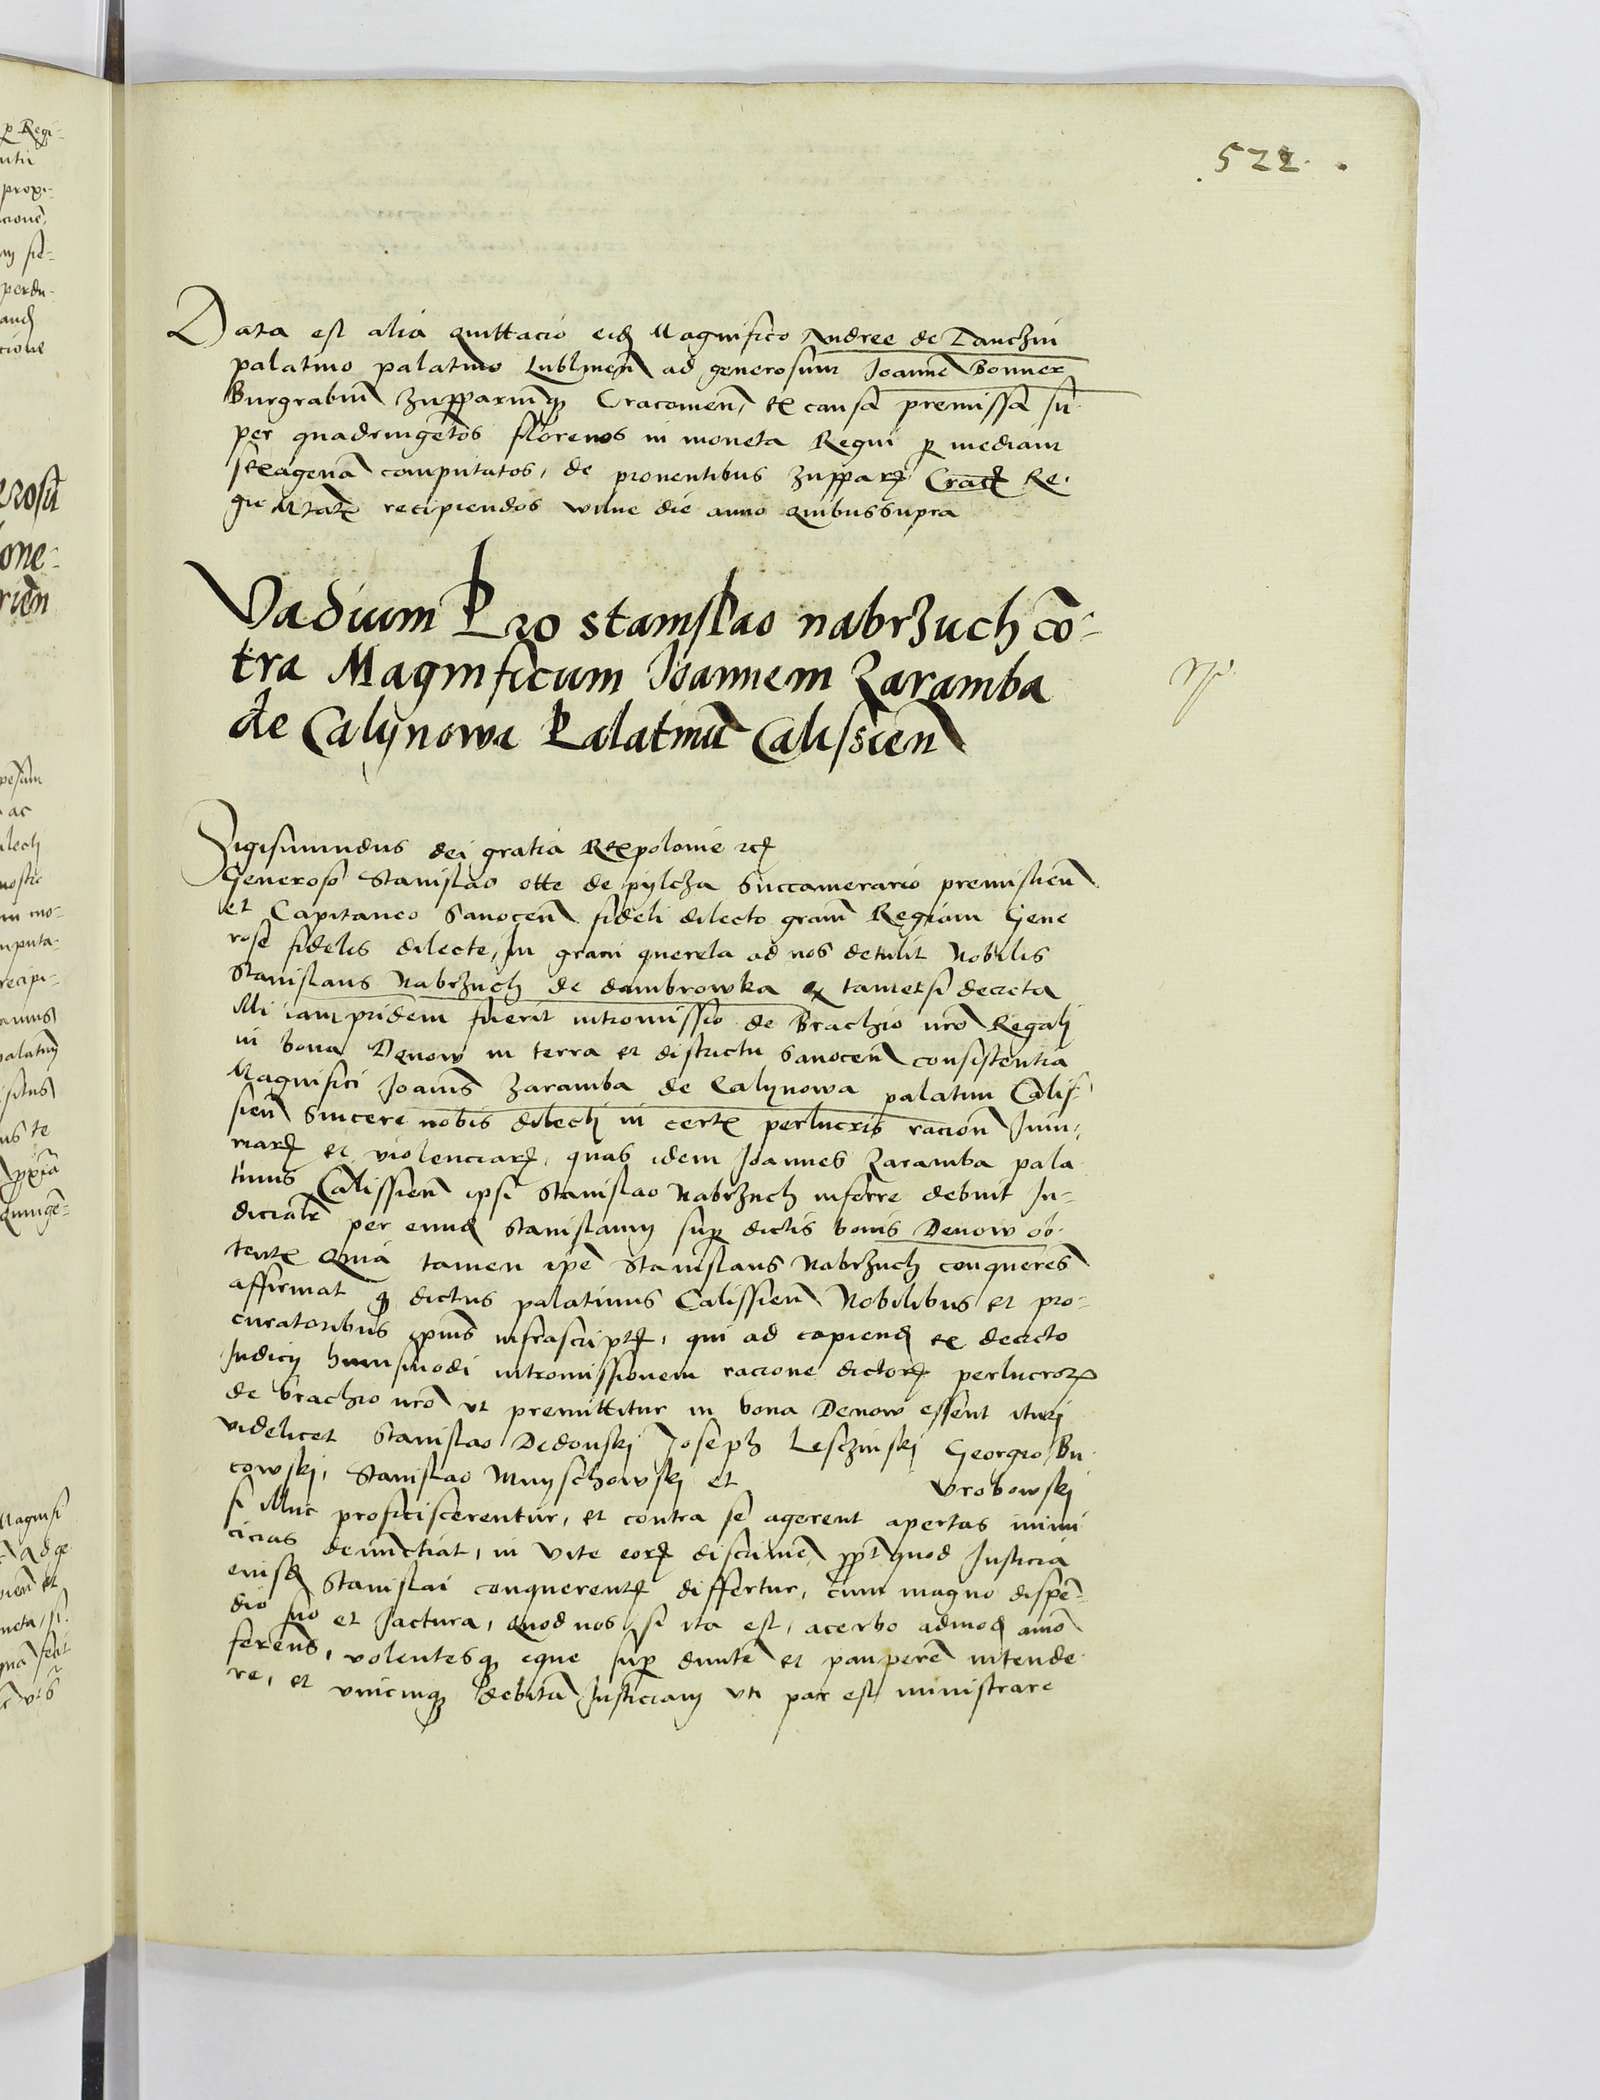 522.
Data est alia quittacio eid Magnifico Andree de Tanchzin
palatino palatino Lublinen ad generosum Joannē Bonner
Burgrabiū Zupparumq Cracouien, ex causa premissa su-
per quadringētos florenos in moneta Regni p mediam
sexagenā computatos, de prouentibus Zuppar Crac Re-
gie Mtat recipiendos wilne die anno quibussupra
Vadium Pro stanislao nabrzuch cō-
tra Magnificum Joannem Zaramba
de Calynowa Palatinū Calissien
Sigismundus dei gratia Rex polonie etc
Generoso Stanislao otte de pylcza Succamerario premislien
et Capitaneo Sanocen fideli dilecto gram Regiam Gene
rose fidelis dilecte, In graui querela ad nos detulit Nobilis
Stanislaus Nabrzuch de dambrowka q tametsi decreta
illi iam pridem fuerit intromissio de Brachio nro Regalj
in bona Denow in terra et districtu Sanocen consistentia
Magnifici Joanis Zaramba de Calynowa palatini Calis-
sien Sincere nobis dilectj in cert perlucris racion Iniu-
riar et violenciar, quas idem Joannes Zaramba pala
tinus Calissien ipsi Stanislao Nabrznch inferre debuit Iu-
diciali per eund Stanislaum sup dictis bonis Denow ob-
tent Quia tamen ipe Stanislaus Nabrzuch conquerēs
affirmat q dictus palatinus Calissien Nobilibus et pro-
curatoribus ipius infrascript, qui ad capiend ex decreto
Iudicij huiusmodi intromissionem racione dictor perlucror
de brachio nro vt premittitur in bona Denow essent iturj
videlicet Stanislao Dedonskj Joseph Lesczinskj Georgio Bu-
cowskj, Stanislao Muyschowskj et Vrobowskj
si illuc proficiscerentur, et contra se agerent apertas inimi
cicias denunctiat, in vite eor discrimē, ppt quod Iusticia
eiusd Stanislai conquerent differtur, cum magno dispē-
dio suo et Iactura, Quod nos si ita est, acerbo admod aīo
ferens, volentesq eque sup diuitē et pauperē intende
re, et vnicuiq debitā Iusticiam vti par est ministrare